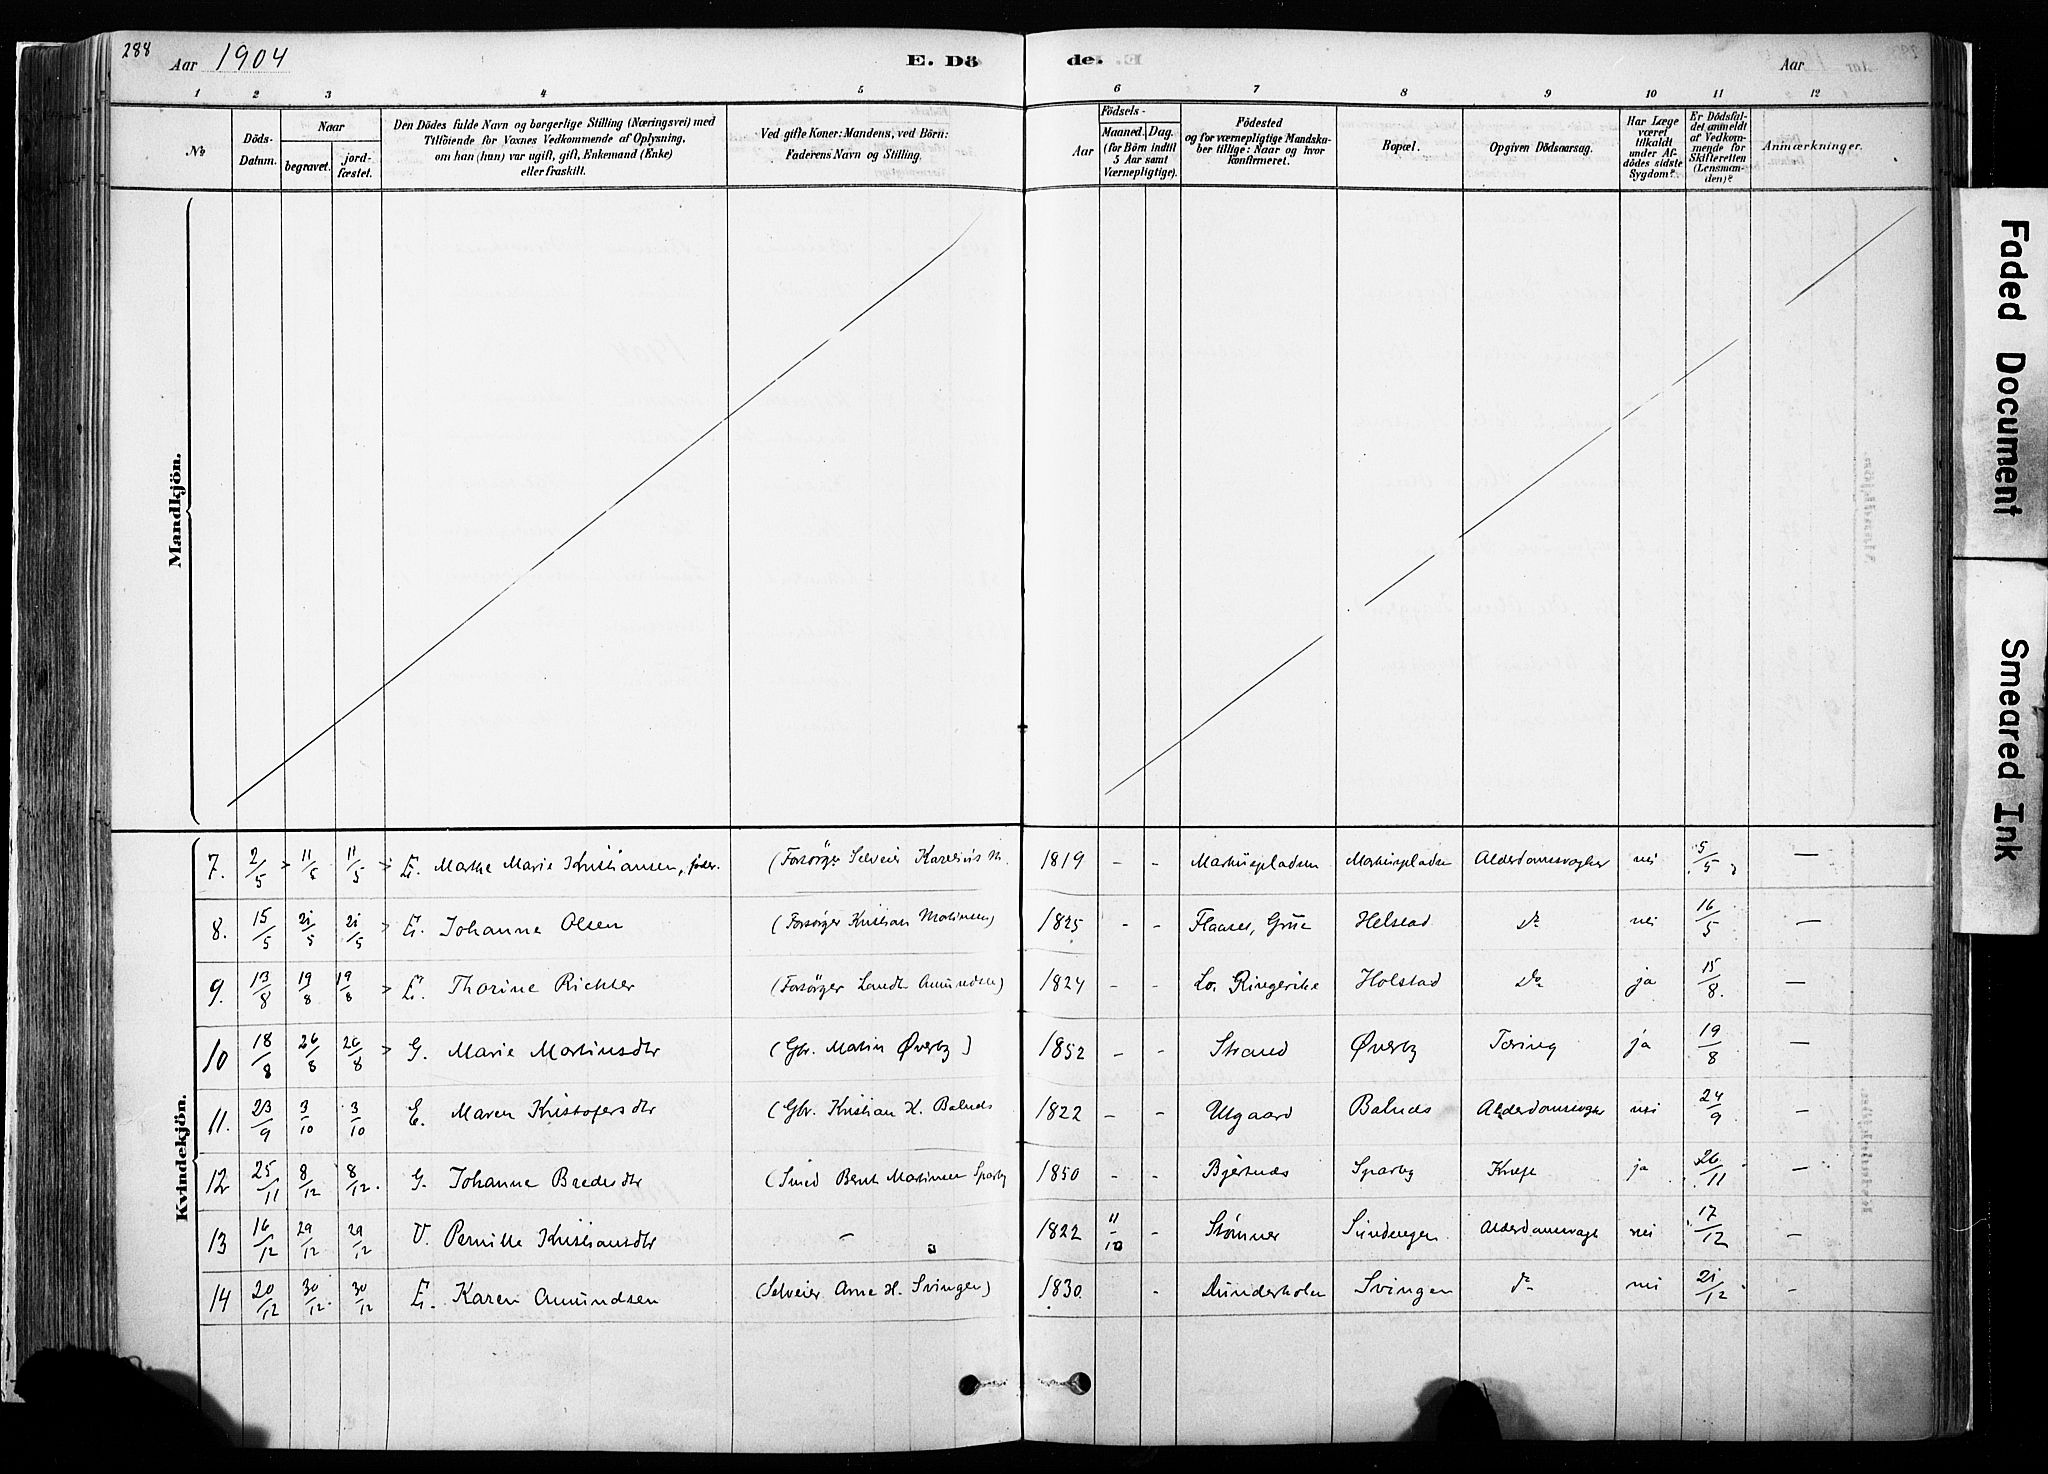 288
Aar 1904
E. Dö
de.
Aar
1 2 3 4 5 6 7 8 9 10 11 12
No
Döds-Datum.
Naar
begravet.
jord-fæstet.
Den Dödes fulde Navn og borgerlige Stilling (Næringsvei) med
Tilföiende for Voxnes Vedkommende af Oplysning,
om han (hun) var ugift, gift, Enkemand (Enke)
eller fraskilt.
Ved gifte Koner: Mandens, ved Börn:
Faderens Navn og Stilling.
Födsels-
Aar
Maaned. Dag.
(for Börn indtil
5 Aar samt
Værnepligtige).
Födested
og for værnepligtige Mandska-
ber tillige: Naar og hvor
konfirmeret.
Bopæl.
Opgiven Dödsaarsag.
Har Læge
været
tilkaldt
under Af-
dödes sidste
Sygdom?
Er Dödsfal-
det anmeldt
af Vedkom-
mende for
Skifteretten
(Lensman-
den)?
Anmærkninger.
Mandkjön.
Kvindekjön.
7. 2/5 11/5 11/5 E. Marthe Marie Kristiansen, (Forsörger Selveier Karelius M. 1819 - - Markuspladsen Markuspladsen Alderdomssvaghed nei 5/5 -
8. 15/5 21/5 21/5 E. Johanne Olsen (Forsörger Kristian Martinsen) 1825 - - Flaaset, Grue Helstad do nei 16/5 -
9. 13/8 19/8 19/8 E. Thorine Richter (Forsörger Landh. Amundsen) 1824 - - Lo. Ringerike Holstad do ja 15/8. -
10 18/8 26/8 26/8 G. Marie Martinsdtr (Gbr. Martin Øverby) 1852 - - Strand Øverby Tæring ja 19/8 -
11. 23/9 3/10 3/10 E. Maren Kristofersdtr (Gbr. Kristian H. Balnds 1822 - - Utgaard Balnds Alderdomssvaghed nei 24/9 -
12 25/11 8/12 8/12. G. Johanne Bredesdtr (Smed Bernt Martinsen Sparby 1850 - - Bjertnæs Sparby Kræft ja 26/11 -
13 16/12 29/12 29/12 U. Pernille Kristiansdtr - 1822 11/10 - Stømner Sundengen Alderdomssvagh nei 17/12 -
14 20/12 30/12. 30/12 E. Karen Amundsen (Selveier Arne H. Svingen) 1830. - Dunderholen Svingen do nei 21/12 -
Faded Document
Smeared Ink